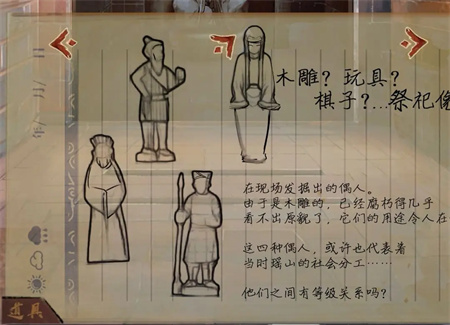 木雕？玩具？
棋子？…祭祀像
在现场发掘出的偶人。
由于是木雕的，已经腐朽得几乎
看不出原貌了，它们的用途令人在
这四种偶人，或许也代表着
当时瑶山的社会分工……
他们之间有等级关系吗？
道具